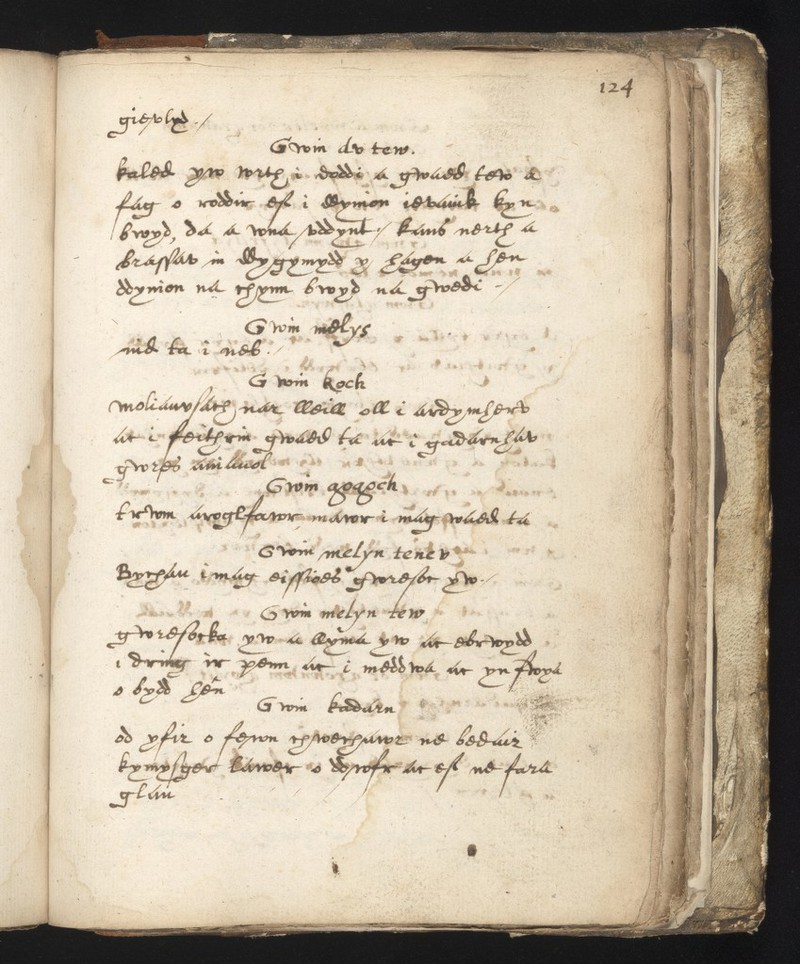 124
gieulyd ./
Gwin du tew.
kaled yw wrth i doddi a gwaed tew a
fag o roddir ef i ddynion ievaink kyn
bwyd, da a wna vddynt ./ kans nerth a
brassav in ddygymydd y hagen a hen
ddynion na chynn bwyd na gwedi ./
Gwin melys
nid ta i neb ./
Gwin koch
moliannusach nar lleill oll i ardymherv
ac i feithrin gwaed ta ac i gadarnhav
gwres aniauol
Gwin gogoch
trwm aroglfawr mawr i mag waed ta
Gwin melyn tenev
Bychan i mag eissioes gwresoc yw ./
Gwin melyn tew
gwresocka yw a llyma yw ac ebrwydd
i dring ir penn ac i meddwa ac yn fwya
o bydd hen
Gwin kadarn
od yfir o fewn chwechawr ne bedair
kymysger lawer o ddwfr ac ef ne fara
glan